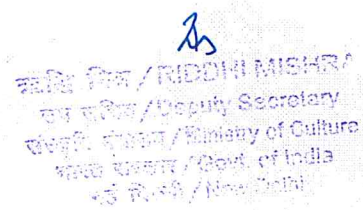 ऋद्धि मिश्रा / RIDDHI MISHRA
उप सचिव / Deputy Secretary
संस्कृति मंत्रालय / Ministry of Culture
भारत सरकार / Govt. of India
नई दिल्ली / New Delhi